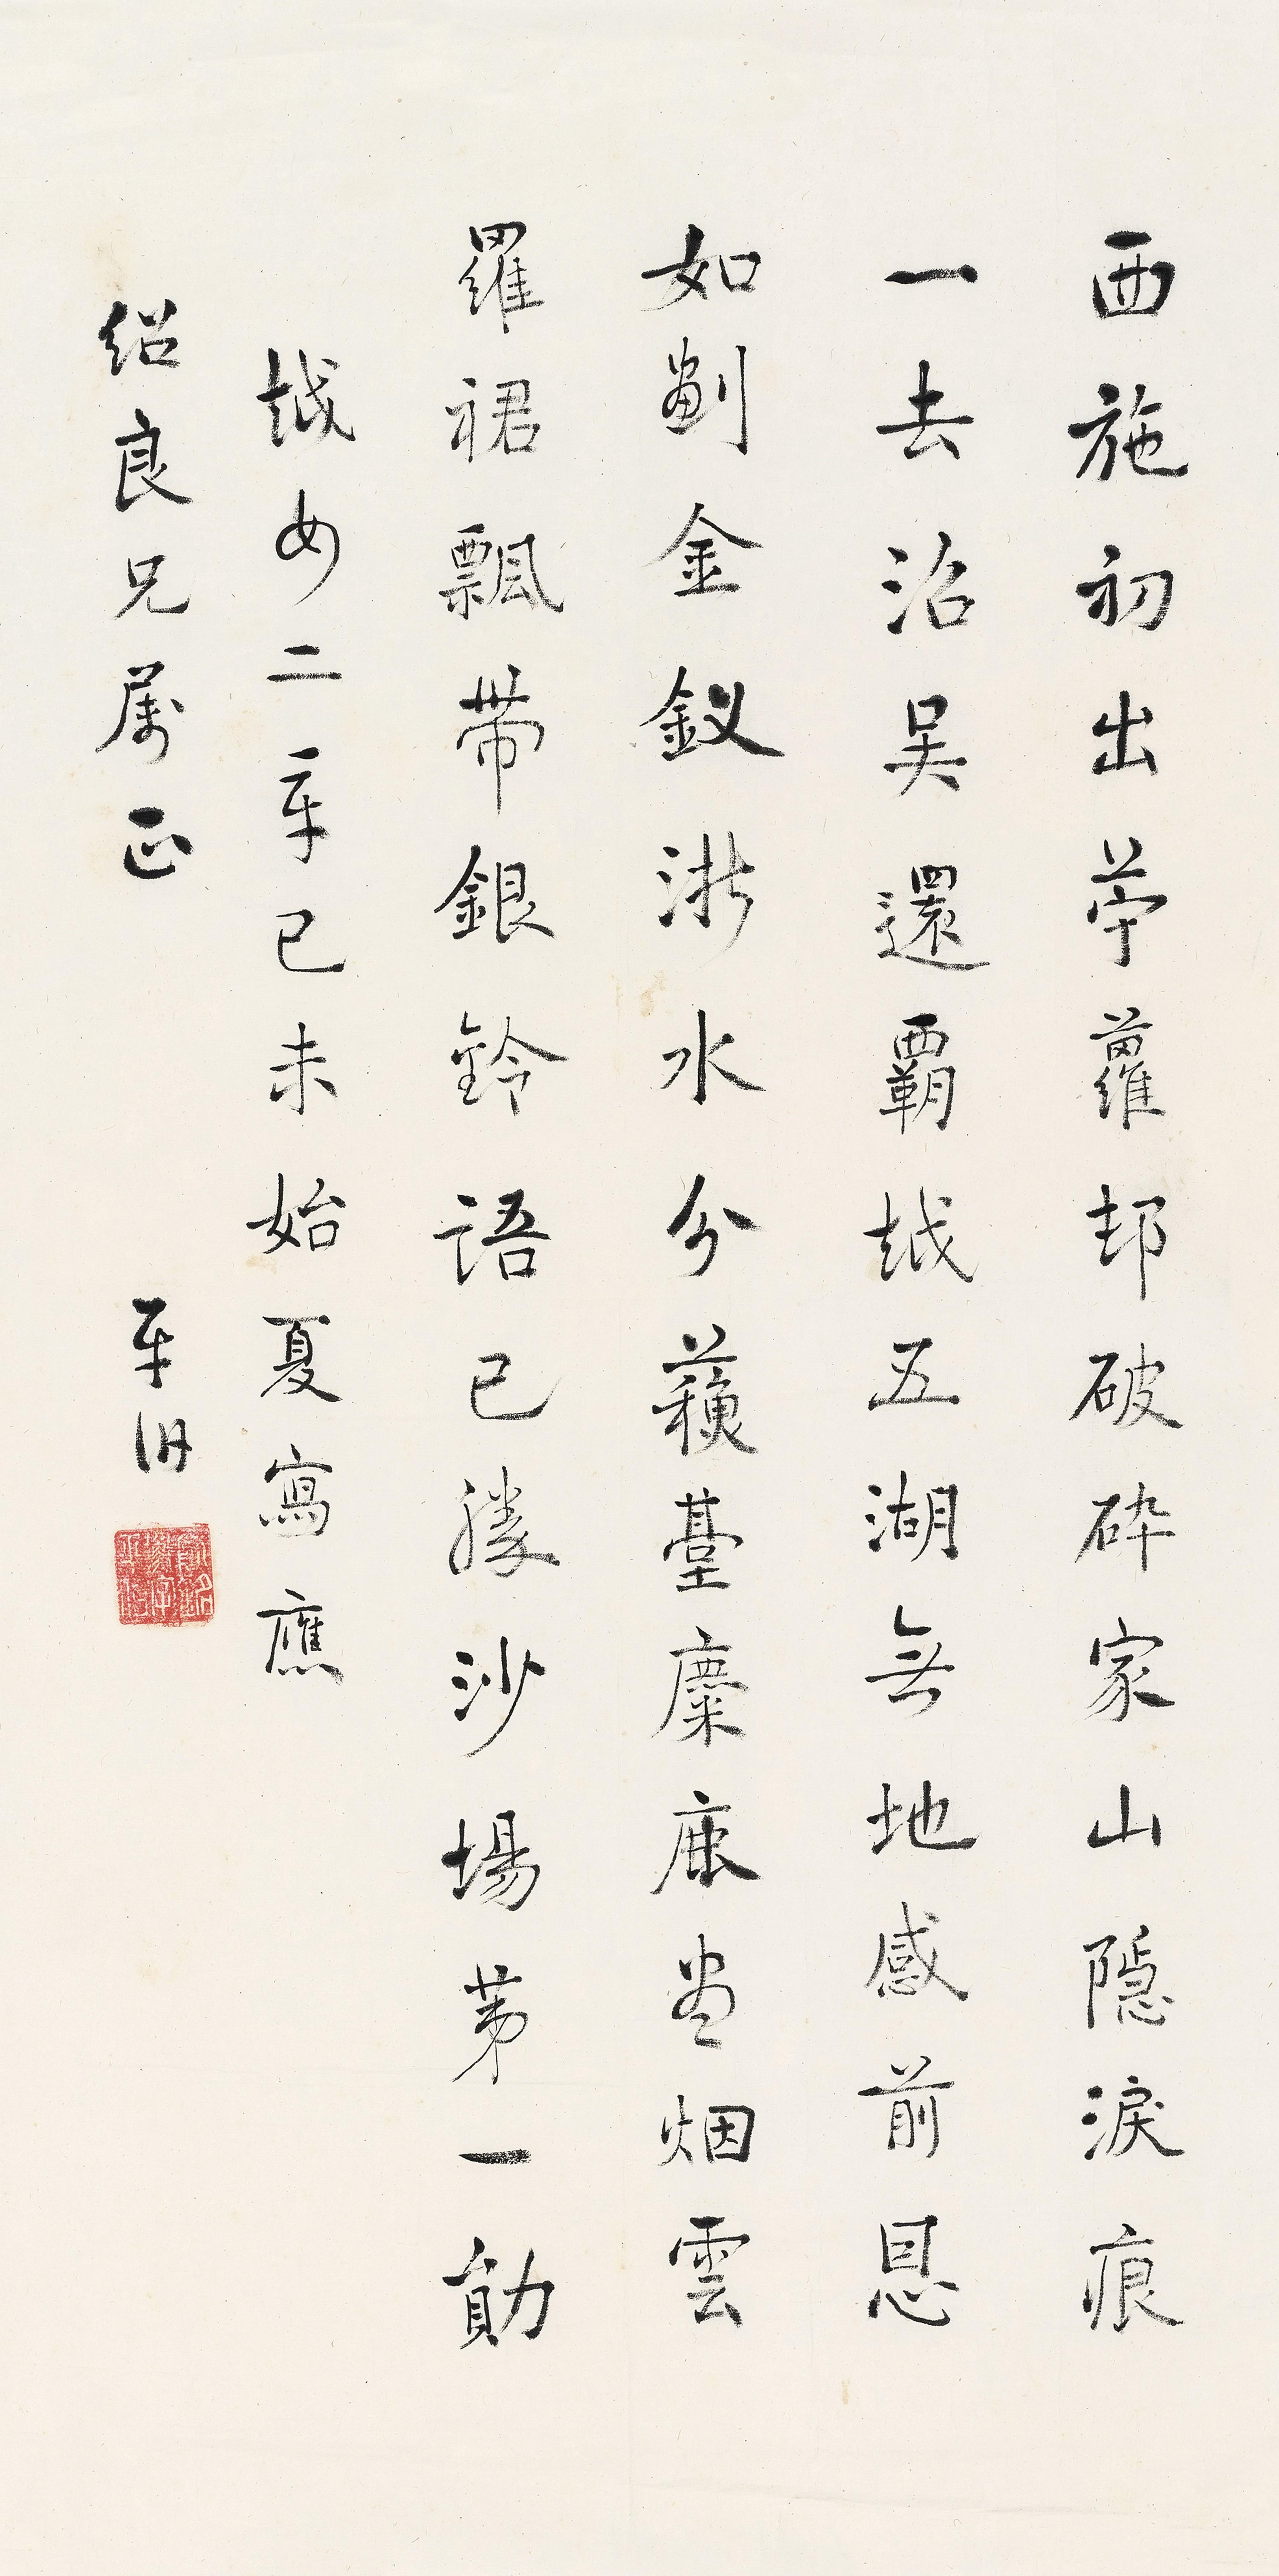 西施初出苧蘿邨破碎家山隱淚痕
一去沼吳還覇越五湖無地感前恩
如劃金釵浙水分蘇臺麋鹿盡烟雲
羅裙飄帶銀鈴語已勝沙場第一勛
越女二章己未始夏寫應
紹良兄屬正 平伯
俞銘衡字平伯